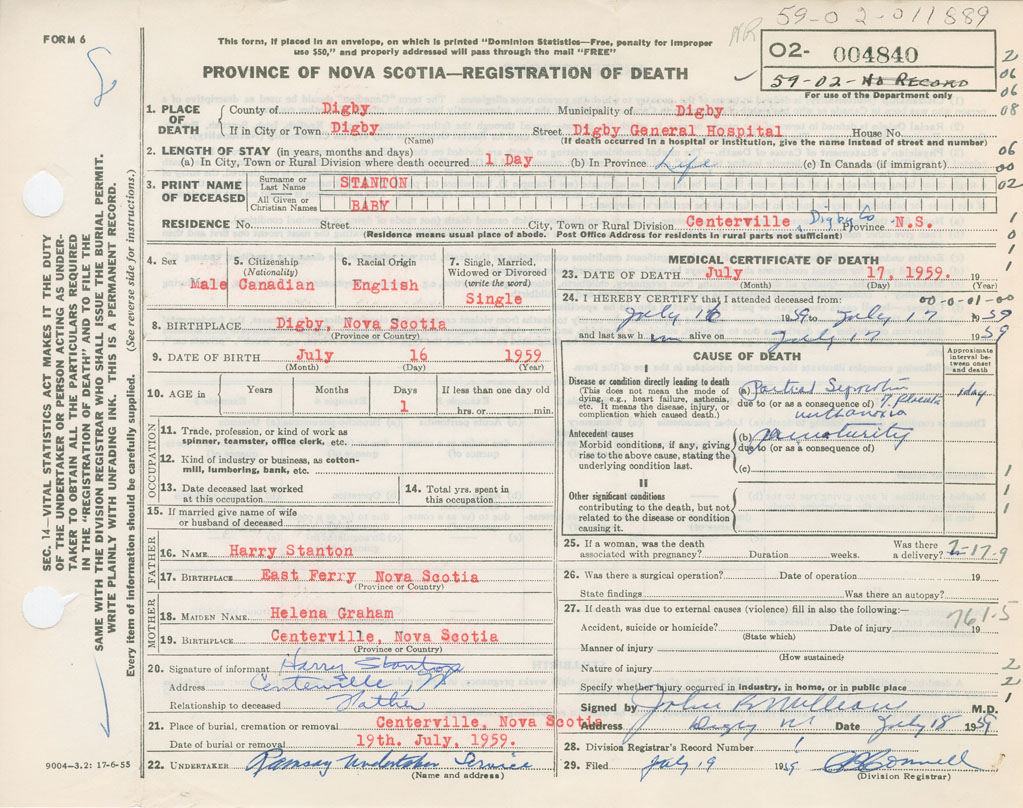 59-02-011889
FORM 6
This form, if placed in an envelope, on which is printed "Dominion Statistics—Free, penalty for improper
use $50," and properly addressed will pass through the mail "FREE"
NR
O2- 004840
59-02-No RECORD
For use of the Department only
PROVINCE OF NOVA SCOTIA—REGISTRATION OF DEATH
2
06
06
08
06
00
02
1
0
1
1. PLACE OF DEATH
County of Digby Municipality of Digby
If in City or Town Digby Street Digby General Hospital House No.
(Name) (If death occurred in a hospital or institution, give the name instead of street and number)
2. LENGTH OF STAY (in years, months and days)
(a) In City, Town or Rural Division where death occurred 1 Day (b) In Province Life (c) In Canada (if immigrant)
3. PRINT NAME OF DECEASED
Surname or Last Name STANTON
All Given or Christian Names BABY
RESIDENCE No. Street City, Town or Rural Division Centerville, Digby Co Province N.S.
(Residence means usual place of abode. Post Office Address for residents in rural parts not sufficient)
4. Sex Male
5. Citizenship (Nationality) Canadian
6. Racial Origin English
7. Single, Married, Widowed or Divorced (write the word) Single
8. BIRTHPLACE Digby, Nova Scotia
(Province or Country)
9. DATE OF BIRTH July 16 1959
(Month) (Day) (Year)
10. AGE in Years Months Days 1 If less than one day old hrs. or min.
OCCUPATION
11. Trade, profession, or kind of work as
spinner, teamster, office clerk, etc.
12. Kind of industry or business, as cotton-
mill, lumbering, bank, etc.
13. Date deceased last worked at this occupation
14. Total yrs. spent in this occupation
15. If married give name of wife
or husband of deceased
FATHER
16. NAME Harry Stanton
17. BIRTHPLACE East Ferry Nova Scotia
(Province or Country)
MOTHER
18. MAIDEN NAME Helena Graham
19. BIRTHPLACE Centerville, Nova Scotia
(Province or Country)
20. Signature of informant Harry Stanton
Address Centerville, NS
Relationship to deceased Father
21. Place of burial, cremation or removal Centerville, Nova Scotia
Date of burial or removal 19th. July, 1959.
22. UNDERTAKER Ramsay Undertaker Service
(Name and address)
MEDICAL CERTIFICATE OF DEATH
23. DATE OF DEATH July 17, 1959. 19
(Month) (Day) (Year)
24. I HEREBY CERTIFY that I attended deceased from: 00-0-01-00
July 16 1959 to July 17 1959
and last saw h im alive on July 17 1959
CAUSE OF DEATH
Approximate interval between onset and death
I
Disease or condition directly leading to death
(This does not mean the mode of
dying, e.g., heart failure, asthenia,
etc. It means the disease, injury, or
complication which caused death.)
(a) Partial Separation 1 day
due to (or as a consequence of) of placenta
Antecedent causes
Morbid conditions, if any, giving
rise to the above cause, stating the
underlying condition last.
(b) prematurity
due to (or as a consequence of)
(c)
II
Other significant conditions
contributing to the death, but not
related to the disease or condition
causing it.
1
1
1
25. If a woman, was the death
associated with pregnancy? Duration weeks. Was there a delivery? 7-17-9
26. Was there a surgical operation? Date of operation 19
State findings Was there an autopsy?
27. If death was due to external causes (violence) fill in also the following:—
761-5
Accident, suicide or homicide? Date of injury 19
(State which)
Manner of injury
(How sustained)
Nature of injury
2
Specify whether injury occurred in industry, in home, or in public place
2
Signed by M.D.
1
Address Digby NS Date July 18 1959
28. Division Registrar's Record Number 1
29. Filed July 19 1959
(Division Registrar)
SEC. 14—VITAL STATISTICS ACT MAKES IT THE DUTY
OF THE UNDERTAKER OR PERSON ACTING AS UNDER-
TAKER TO OBTAIN ALL THE PARTICULARS REQUIRED
IN THE "REGISTRATION OF DEATH" AND TO FILE THE
SAME WITH THE DIVISION REGISTRAR WHO SHALL ISSUE THE BURIAL PERMIT.
WRITE PLAINLY WITH UNFADING INK. THIS IS A PERMANENT RECORD.
Every item of information should be carefully supplied. (See reverse side for instructions.)
9004—3.2: 17-6-55